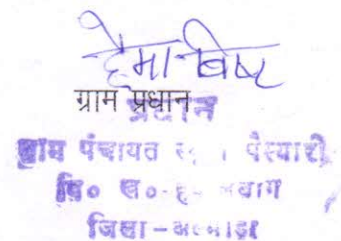 हेमा बिष्ट
ग्राम प्रधान
प्रधान
ग्राम पंचायत पैस्यारी
वि० ख०
जिला-अल्मोड़ा